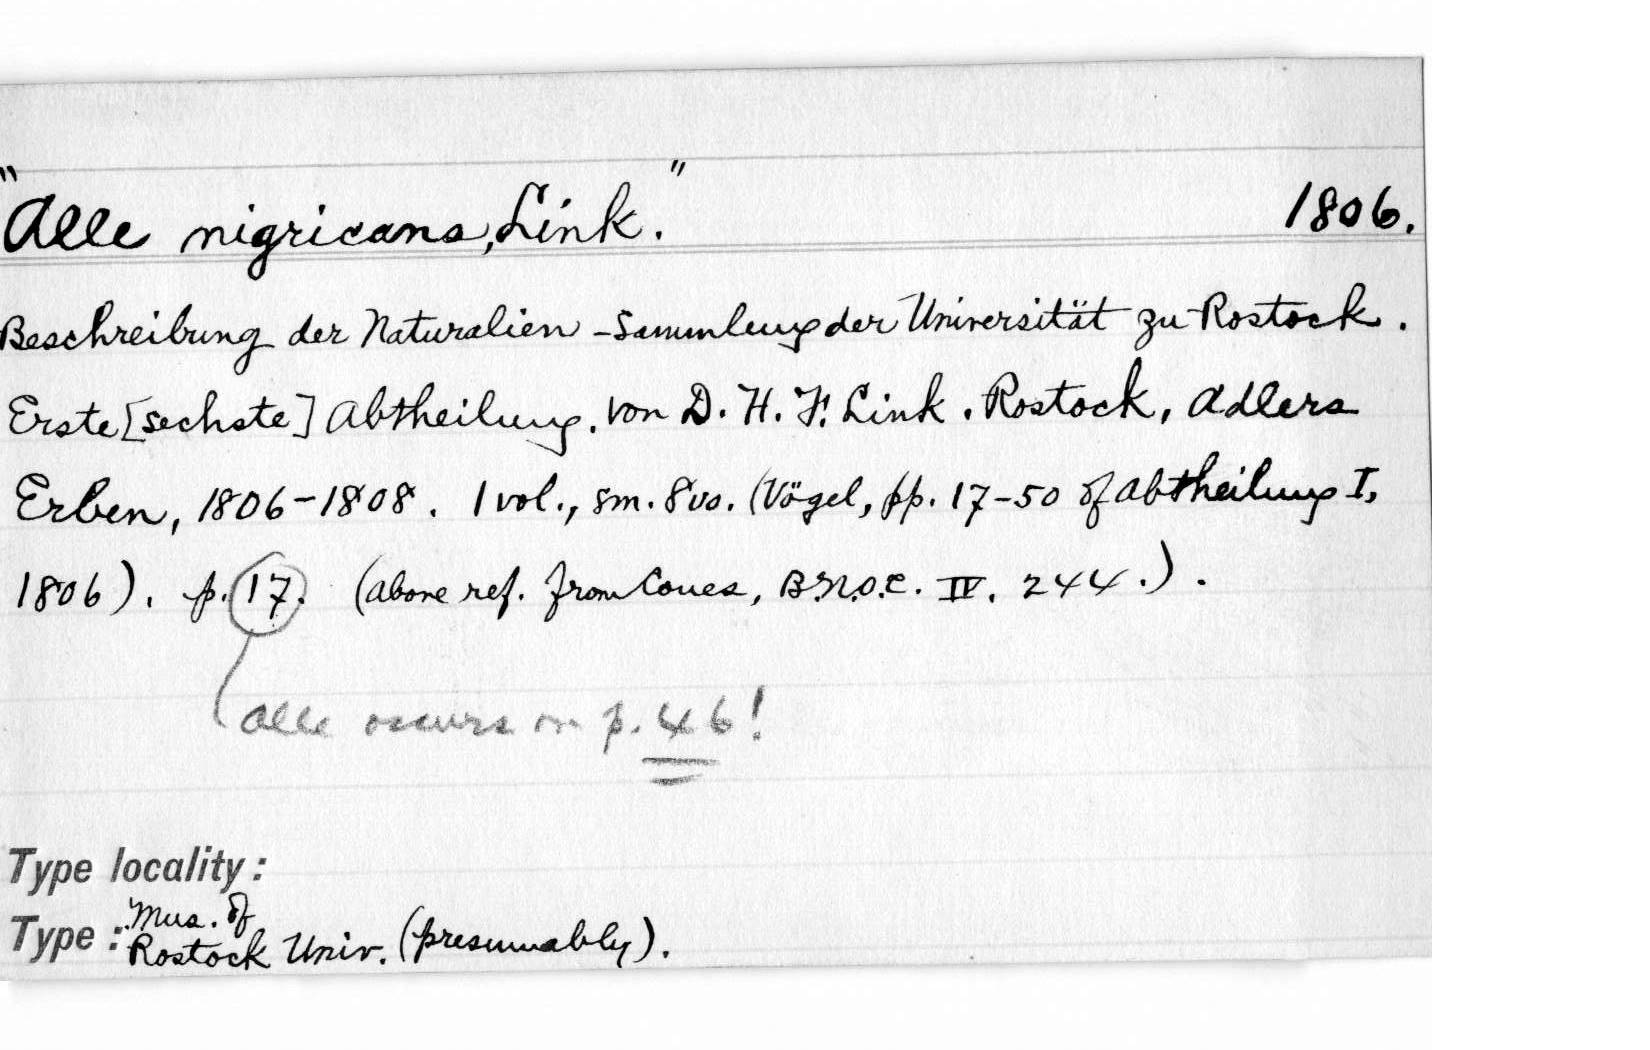 "Alle nigricans, Link." 1806.
Beschreibung der Naturalien-Sammlung der Universität zu Rostock.
Erste [sechste] Abtheilung. von D. H. F. Link. Rostock, Adlers
Erben, 1806-1808. 1 vol., sm. 8vo. (Vögel, pp. 17-50 of Abtheilung I,
1806). p. 17. (above ref. from Coues, B.N.O.C. IV. 244.).
Alle occurs on p. 46!
Type locality:
Type: Mus. of
Rostock Univ. (presumably).